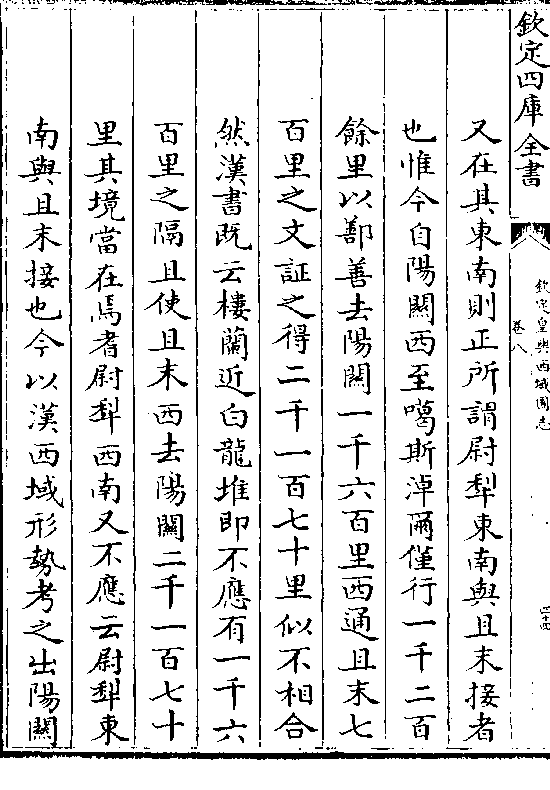 欽定四庫全書
欽定皇輿西域圖志
卷八
四十四
又在其東南則正所謂尉犁東南與且末接者
也惟今自陽關西至噶斯淖爾僅行一千二百
餘里以鄯善去陽關一千六百里西通且末七
百里之文証之得二千一百七十里似不相合
然漢書既云樓蘭近白龍堆即不應有一千六
百里之隔且使且末西去陽關二千一百七十
里其境當在焉耆尉犁西南又不應云尉犁東
南與且末接也今以漢西域形勢考之出陽關